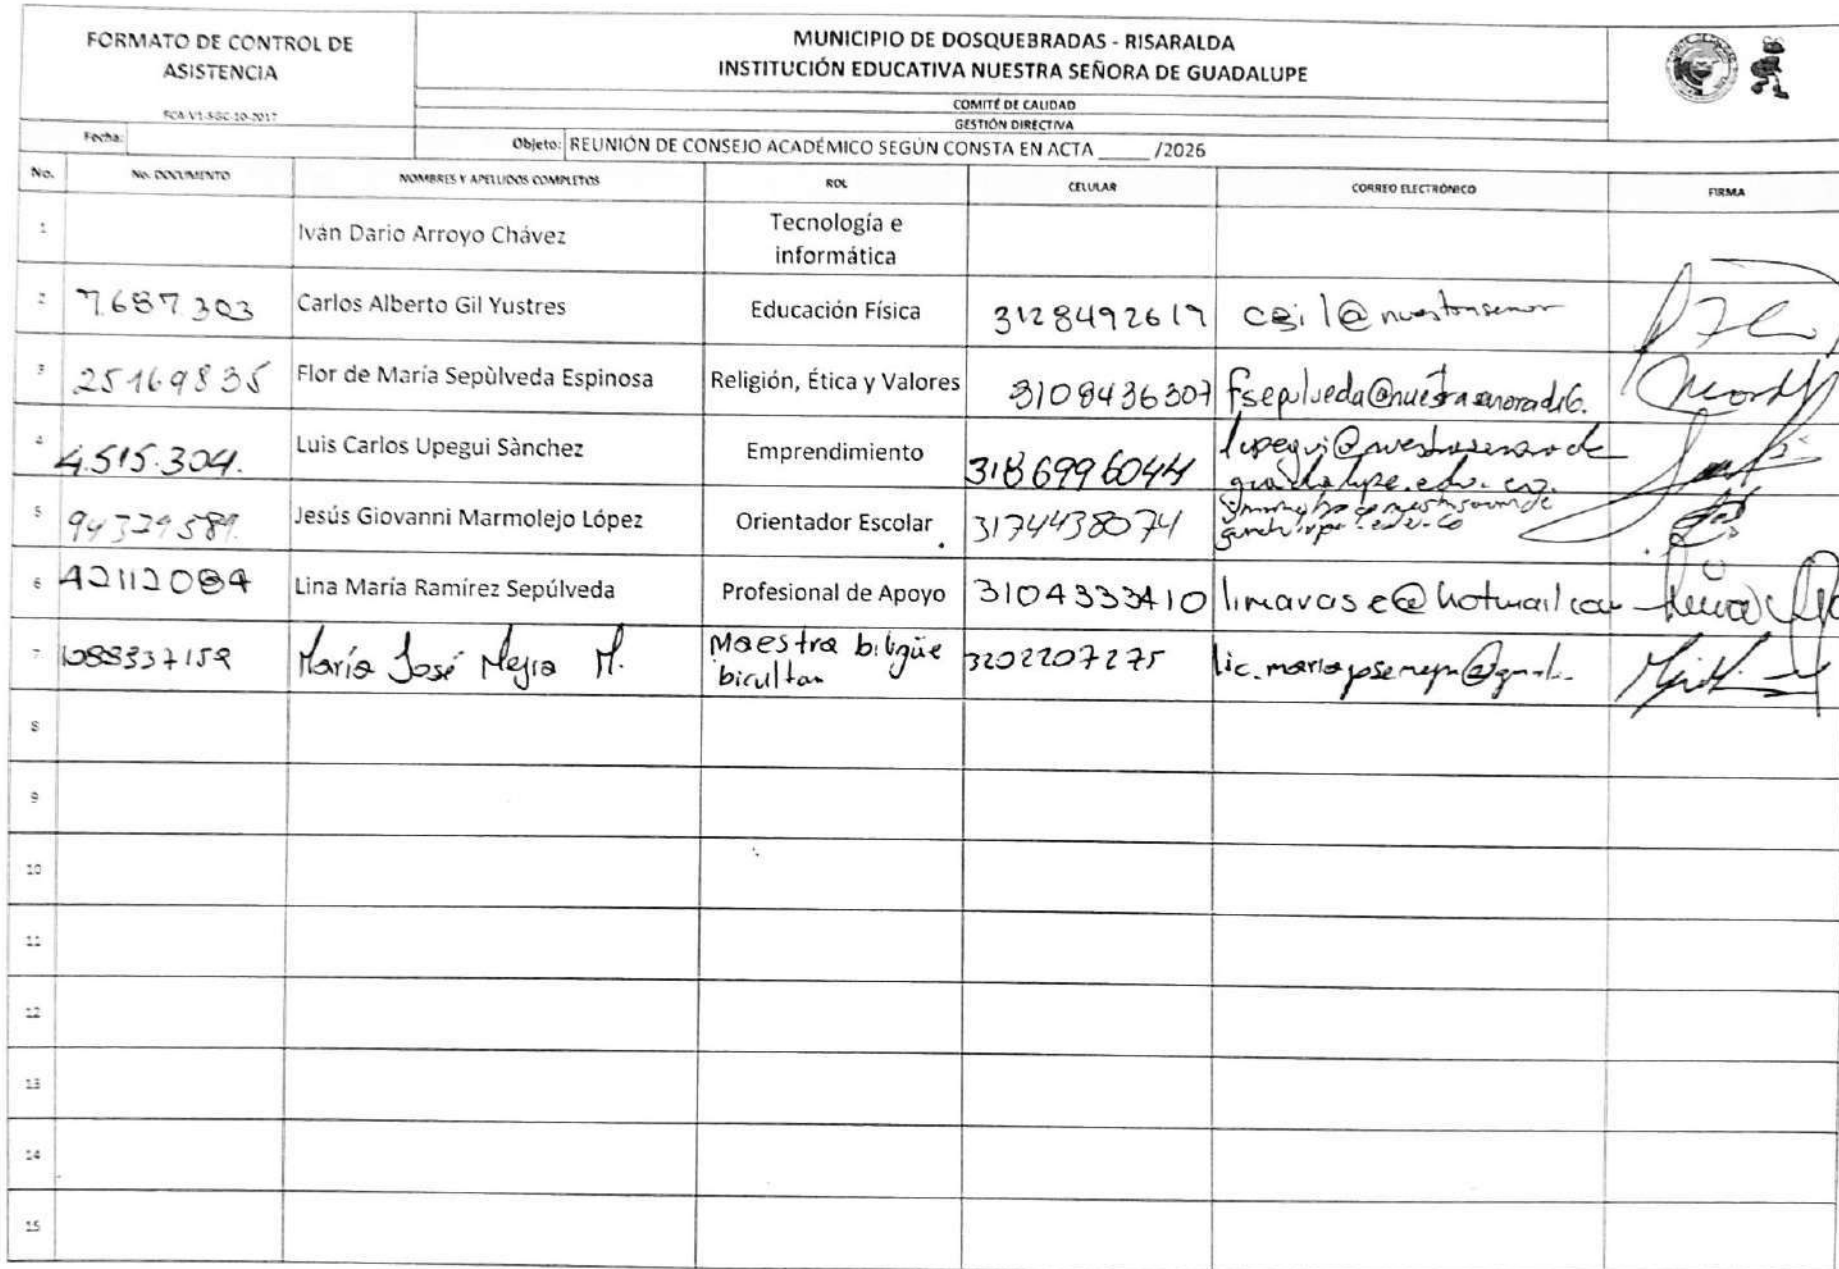 FORMATO DE CONTROL DE
ASISTENCIA
FCA-V1-SGC-10-2017
MUNICIPIO DE DOSQUEBRADAS - RISARALDA
INSTITUCIÓN EDUCATIVA NUESTRA SEÑORA DE GUADALUPE
COMITÉ DE CALIDAD
GESTIÓN DIRECTIVA
Fecha:
Objeto: REUNIÓN DE CONSEJO ACADÉMICO SEGÚN CONSTA EN ACTA _____ /2026
No. No. DOCUMENTO NOMBRES Y APELLIDOS COMPLETOS ROL CELULAR CORREO ELECTRÓNICO FIRMA
1 Iván Dario Arroyo Chávez Tecnología e
informática
2 7.687.303 Carlos Alberto Gil Yustres Educación Física 3128492619
3 25169835 Flor de María Sepùlveda Espinosa Religión, Ética y Valores 3108436307
4 4.515.304. Luis Carlos Upegui Sànchez Emprendimiento 3186996044
5 Jesús Giovanni Marmolejo López Orientador Escolar 3174438074
6 42112084 Lina María Ramírez Sepúlveda Profesional de Apoyo 3104333410
7 1088337159 María José Mejia M. Maestra 3202207275
8
9
10
11
12
13
14
15